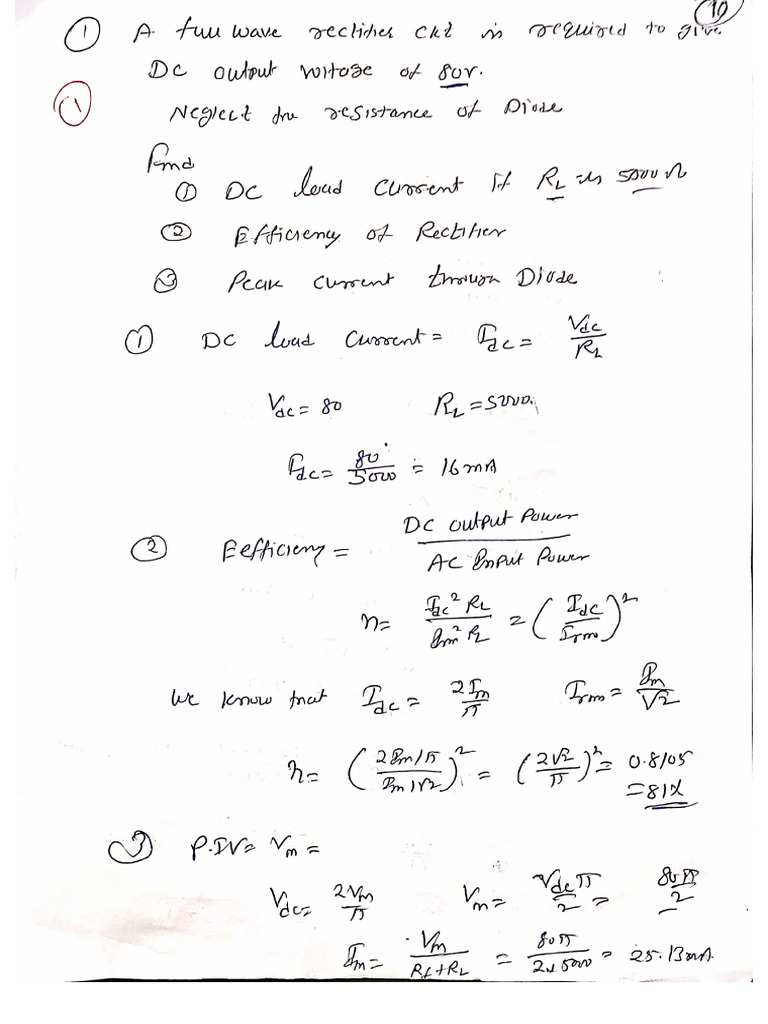 19
① A full wave rectifier ckt is required to give
DC output voltage of 80v.
① Neglect the resistance of Diode
Find
① DC load current if RL is 5000 Ω
② Efficiency of Rectifier
③ Peak current through Diode
① DC load current = Idc = Vdc/RL
Vdc = 80 RL = 5000.
Idc = 80/5000 = 16mA
② Eefficieny = DC output Power / AC Input Power
η = Idc² RL / Irm² RL = (Idc/Irms)²
We know that Idc = 2Im/π Irms = Im/√2
η = (2Im/π / Im/√2)² = (2√2/π)² = 0.8105
= 81%
③ P.IV = Vm =
Vdc = 2Vm/π Vm = Vdcπ/2 = 80π/2
Im = Vm/Rf+RL = 80π/2x5000 = 25.13mA.